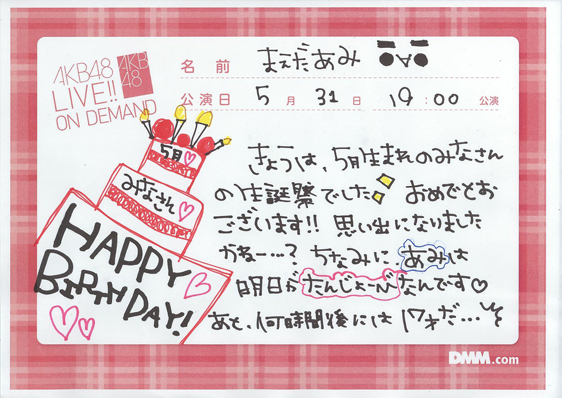 AKB48
LIVE!!
ON DEMAND
AKB
48
名前 まえだあみ
公演日 5月31日 19:00 公演
5月
みなさん
HAPPY
BIRTHDAY!
きょうは、5月生まれのみなさん
の生誕祭でした おめでとお
ございます!! 思い出になりました
かねー…? ちなみに、あみは
明日がたんじょーびなんです♡
あと、何時間後には17才だ…
DMM.com